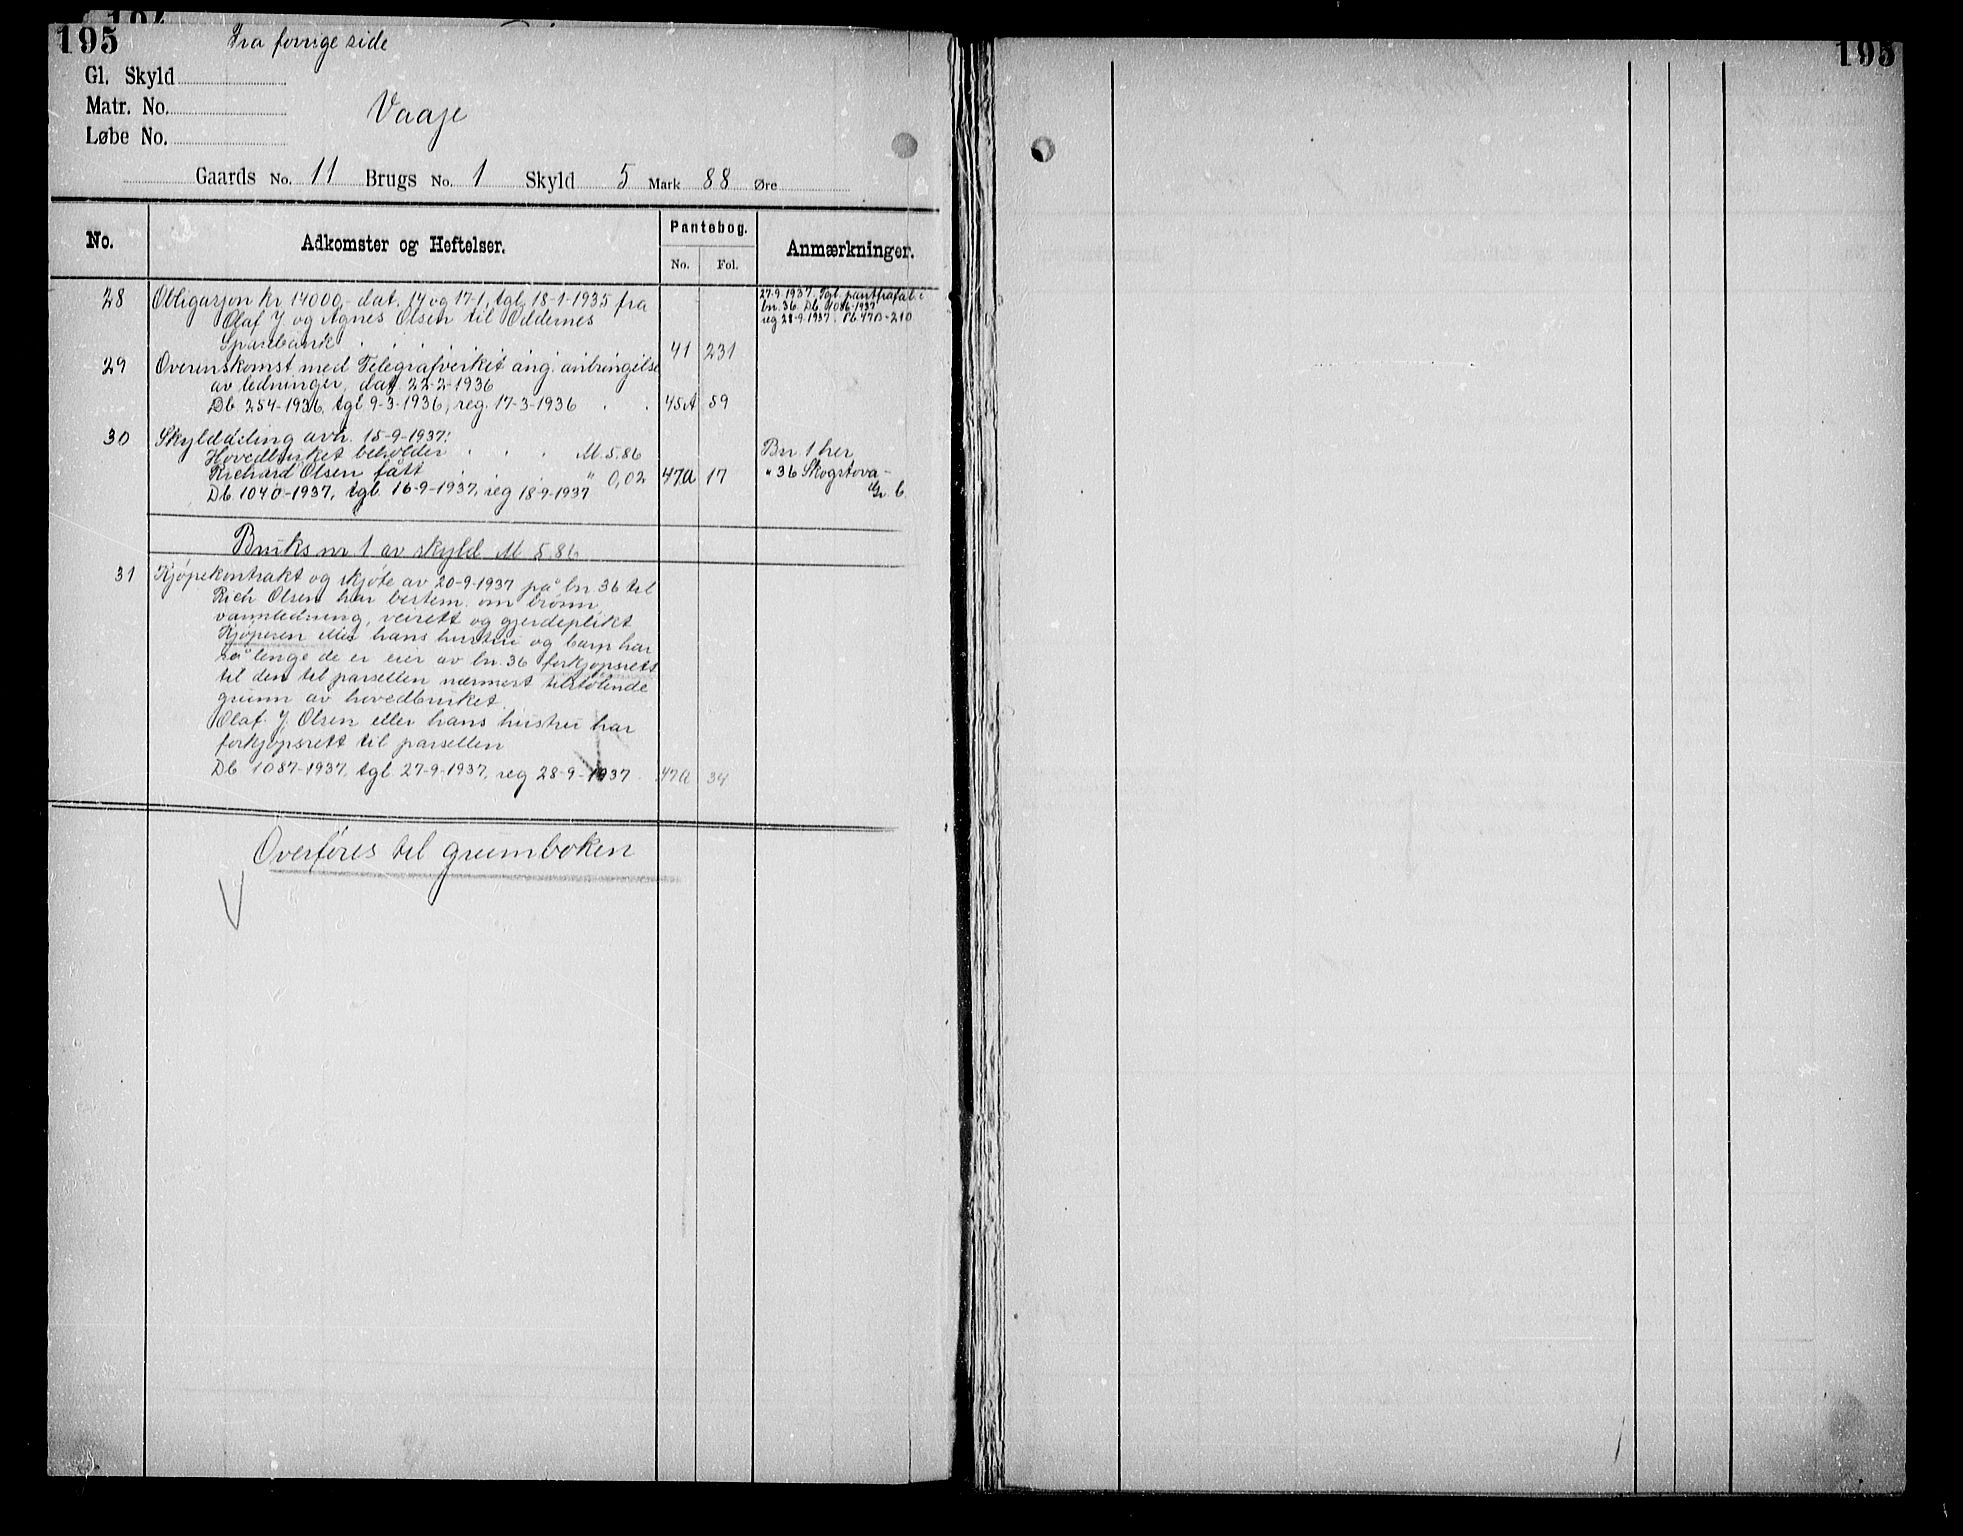 195
Fra forrige side
Gl. Skyld
Matr. No.
Løbe No.
Vaaje
Gaards No. 11 Brugs No. 1 Skyld 5 Mark 88 Øre
No. Adkomster og Heftelser. Pantebog. No. Fol. Anmærkninger.
28 Obligasjon kr 14000,- dat. 14 og 17-1, tgl. 18-1-1935 fra
Olaf J. og Agnes Olsen til Oddernes
Sparebank . . . . 41 231
27-9-1937. Tgl. pantfrafal i
bn. 36 Db 1086-1937
reg 28-9-1937. Pb 47B-210
29 Overenskomst med Telegrafverket ang. anbringelse
av ledninger, dat. 22-2-1936
Db 254-1936, tgl 9-3-1936, reg. 17-3-1936 . . 45A 59
30 Skylddeling avh. 15-9-1937:
Hovedbruket beholder . . . M 5.86 Bn 1 her
Richard Olsen fått . . . " 0,02 47A 17 " 36 Skogstova -
Db 1040-1937, tgl 16-9-1937, reg 18-9-1937
Bruks nr. 1 av skyld M 5.86
31 Kjøpekontrakt og skjøte av 20-9-1937 på bn 36 til
Rich Olsen har bestem. om brønn,
vannledning, veirett og gjerdeplikt
Kjøperen eller hans hustru og barn har
så lenge de er eier av bn. 36 forkjøpsrett
til den til parsellen nærmest tilstøtende
grunn av hovedbruket.
Olaf J. Olsen eller hans hustru har
forkjøpsrett til parsellen
Db 1087-1937, tgl 27-9-1937, reg 28-9-1937 . 47A 34
Overføres til grunnboken
195